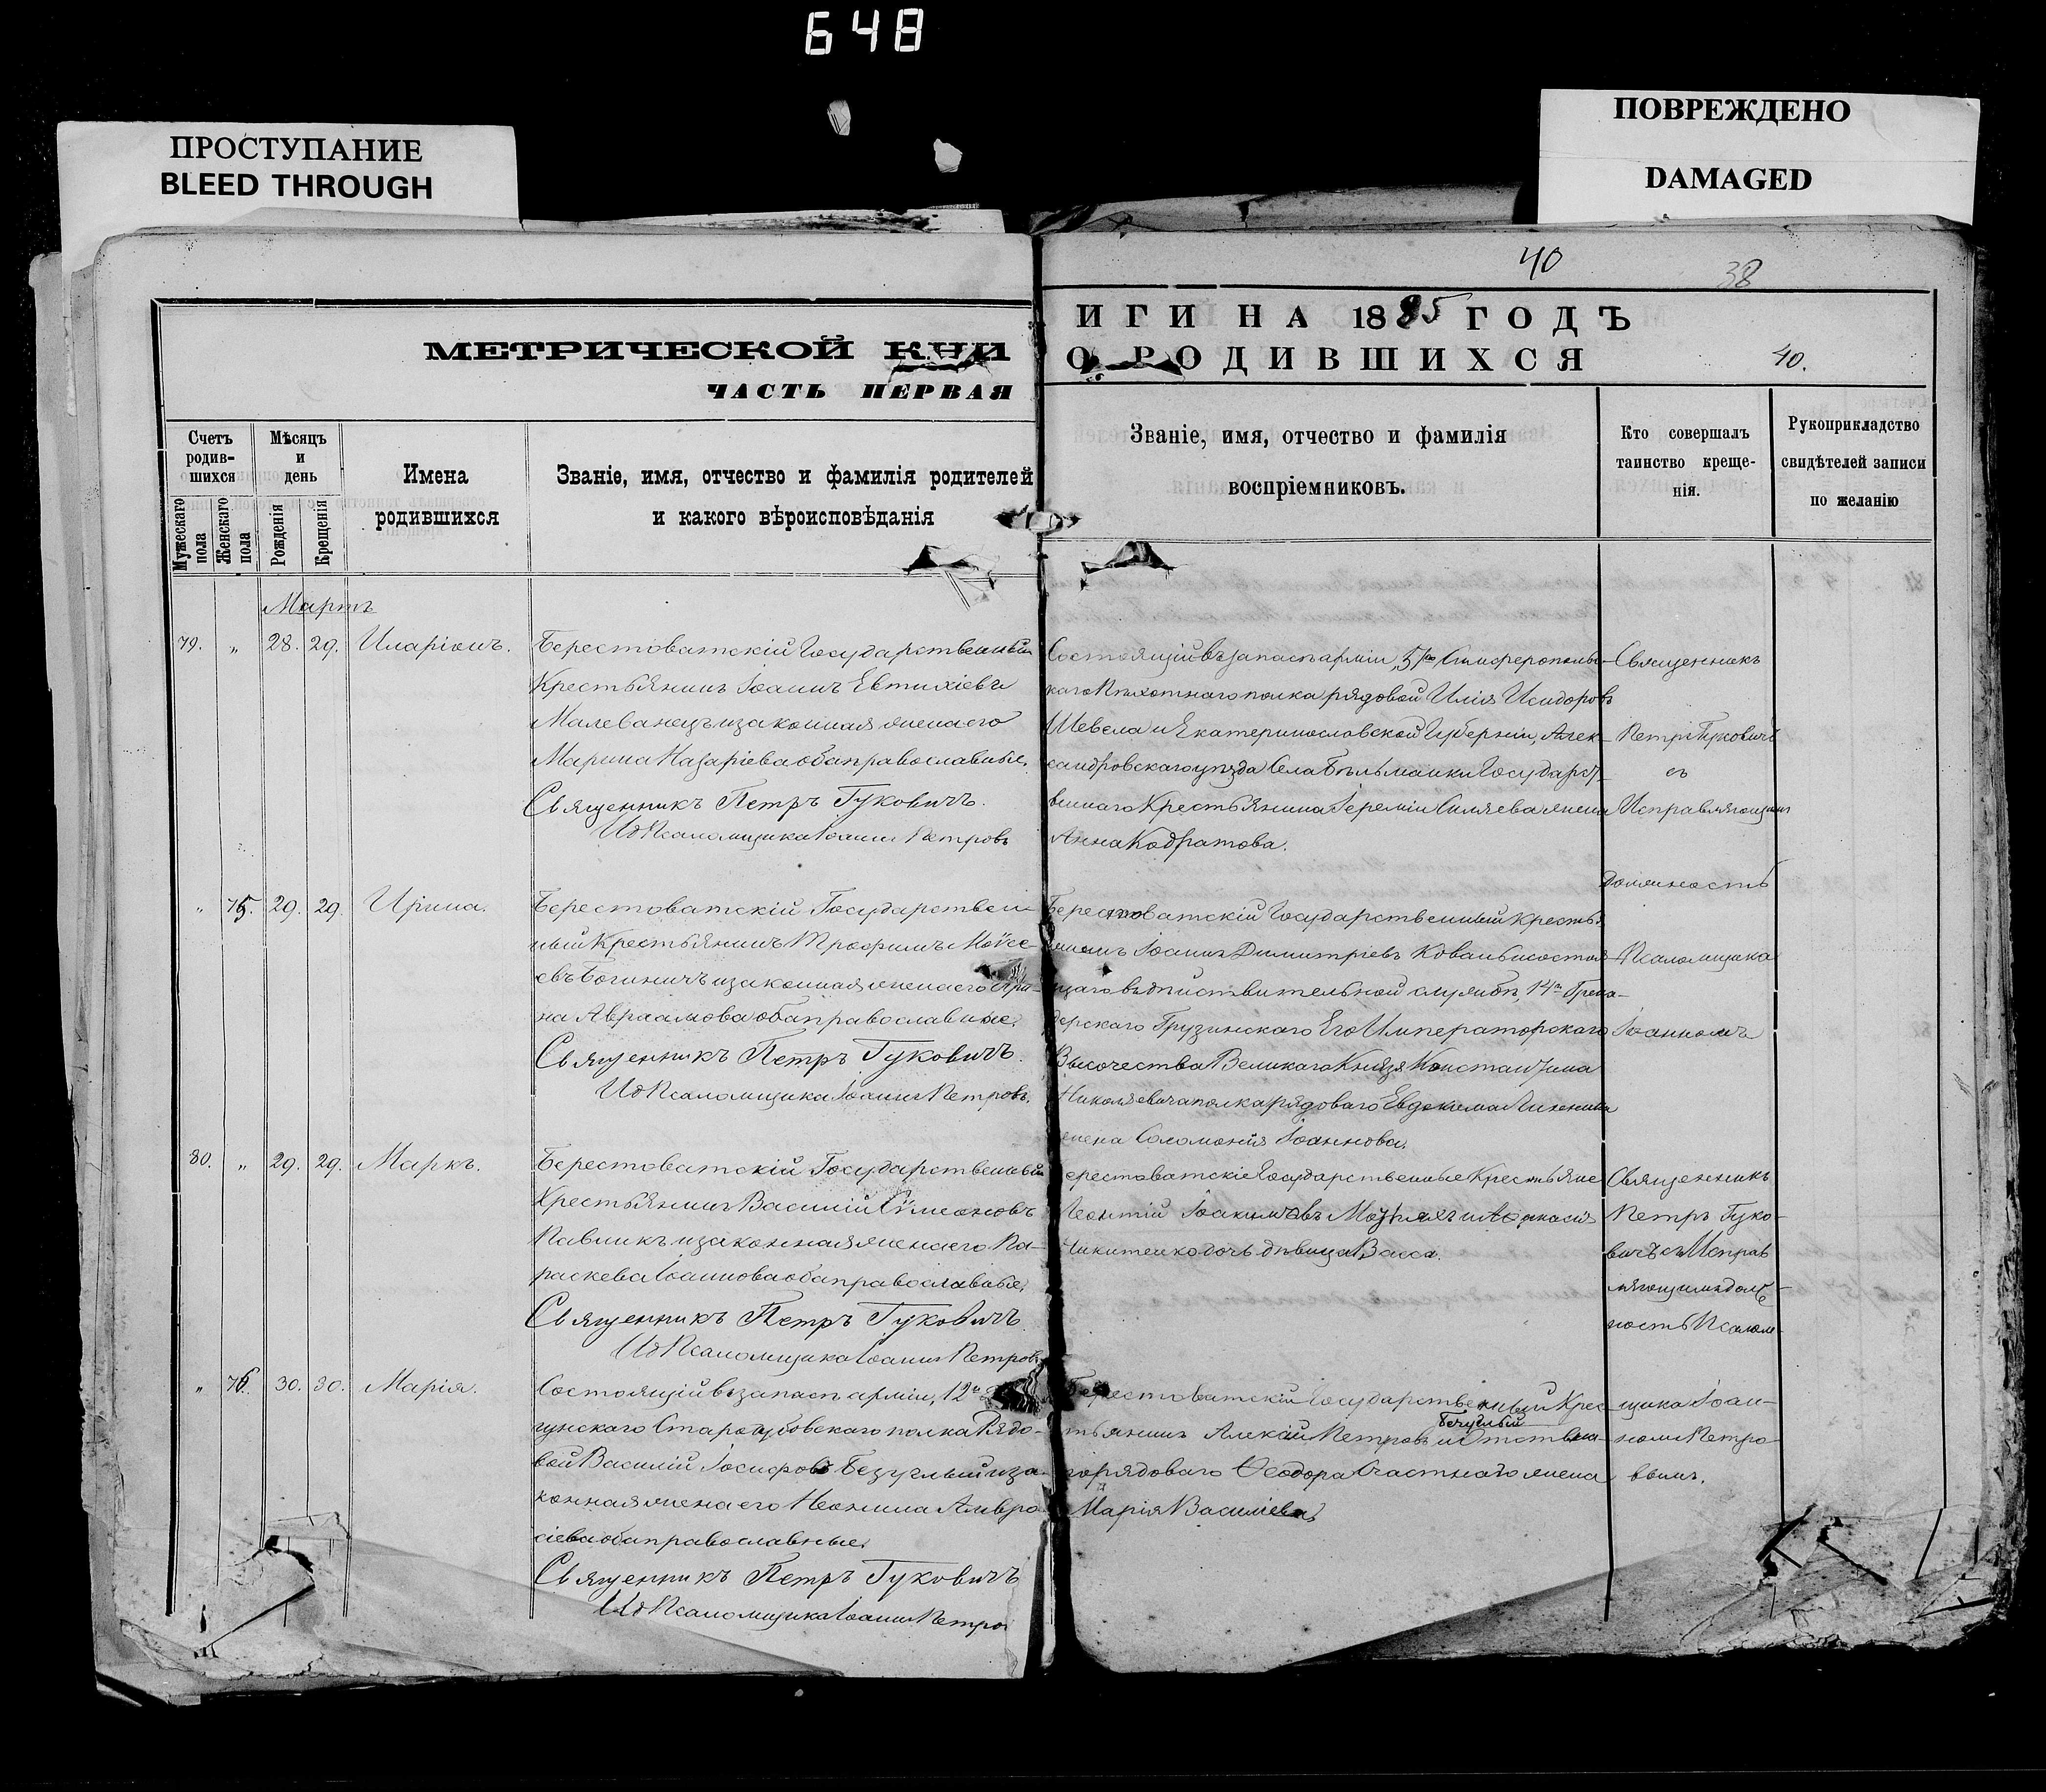 648
ПРОСТУПАНИЕ
BLEED THROUGH
ПОВРЕЖДЕНО
DAMAGED
40
38
МЕТРИЧЕСКОЙ КНИ
ЧАСТЬ ПЕРВАЯ
ИГИ НА 1885 ГОДЪ
О РОДИВШИХСЯ
40.
Счетъ родив-шихся
Мужескаго пола
Женскаго пола
Мѣсяцъ и день
Рожденія
Крещенія
Имена родившихся
Званіе, имя, отчество и фамилія родителей
и какого вѣроисповѣданія
Званіе, имя, отчество и фамилія
воспріемниковъ.
Кто совершалъ таинство креще-нія.
Рукоприкладство свидѣтелей записи по желанію
Мартъ
79. " 28. 29. Иларіонъ.
Берестоватскій Государственный
Крестьянинъ Іоаннъ Евтихіевъ
Малеванецъ и законная жена его
Марина Назаріева оба православные.
Священникъ Петръ Гуковичъ.
Ид Псаломщика Іоаннъ Петровъ
Состоящій въ запасѣ арміи, Симферополь-
скаго Пѣхотнаго полка рядовой Илія Исидоровъ
Шевела и Екатеринославской Губерніи, Алек-
сандровскаго уѣзда Села Бѣльманки Государст-
веннаго Крестьянина Іереміи жена
Анна Кодратова.
Священникъ
Петръ Гуковичъ
съ
Исправляющимъ
должность
Псаломщика
Іоанномъ
" 75. 29. 29. Ирина.
Берестоватскій Государствен-
ный Крестьянинъ Трофимъ Моѵсе-
евъ Богиничъ и законная жена его Ири-
на Авраамова оба православные.
Священникъ Петръ Гуковичъ.
Ид Псаломщика Іоаннъ Петровъ.
Берестоватскій Государственный крестья
нинъ Іоаннъ Димитріевъ Коваль и состоя-
щаго въ дѣйствительной службѣ, 14го Грена-
дерскаго Грузинскаго Его Императорскаго
Высочества Великаго Князя Константина
Николаевича полка рядоваго Евдокима
жена Соломонія Іоаннова.
80. " 29. 29. Маркъ.
Берестоватскій Государственный
Крестьянинъ Василій Сѵмеоновъ
Павликъ и законная жена его Па-
раскева Іоаннова оба православные.
Священникъ Петръ Гуковичъ
Ид Псаломщика Іоаннъ Петровъ
Берестоватскіе Государственные Крестьяне
Леонтій Іоакимовъ и
Никитенко дочь дѣвица Васса.
Священникъ
Петръ Гуко-
вичъ съ Исправ
ляющимъ долж-
ность Псалом-
щика Іоан-
номъ Петро-
вымъ.
" 76. 30. 30. Марія.
Состоящій въ запасѣ арміи, 12го
гунскаго Стародубовскаго полка Рядо-
вой Василій Іосифовъ Безуглый и за-
конная жена его Неонила Амвро-
сіева оба православные.
Священникъ Петръ Гуковичъ
Ид Псаломщика Іоаннъ Петро
Берестоватскій Государственный Крес-
Безуглый
тьянинъ Алексій Петровъ и Отставна-
го рядоваго Ѳеодора Счастнаго жена
Марія Василіева.